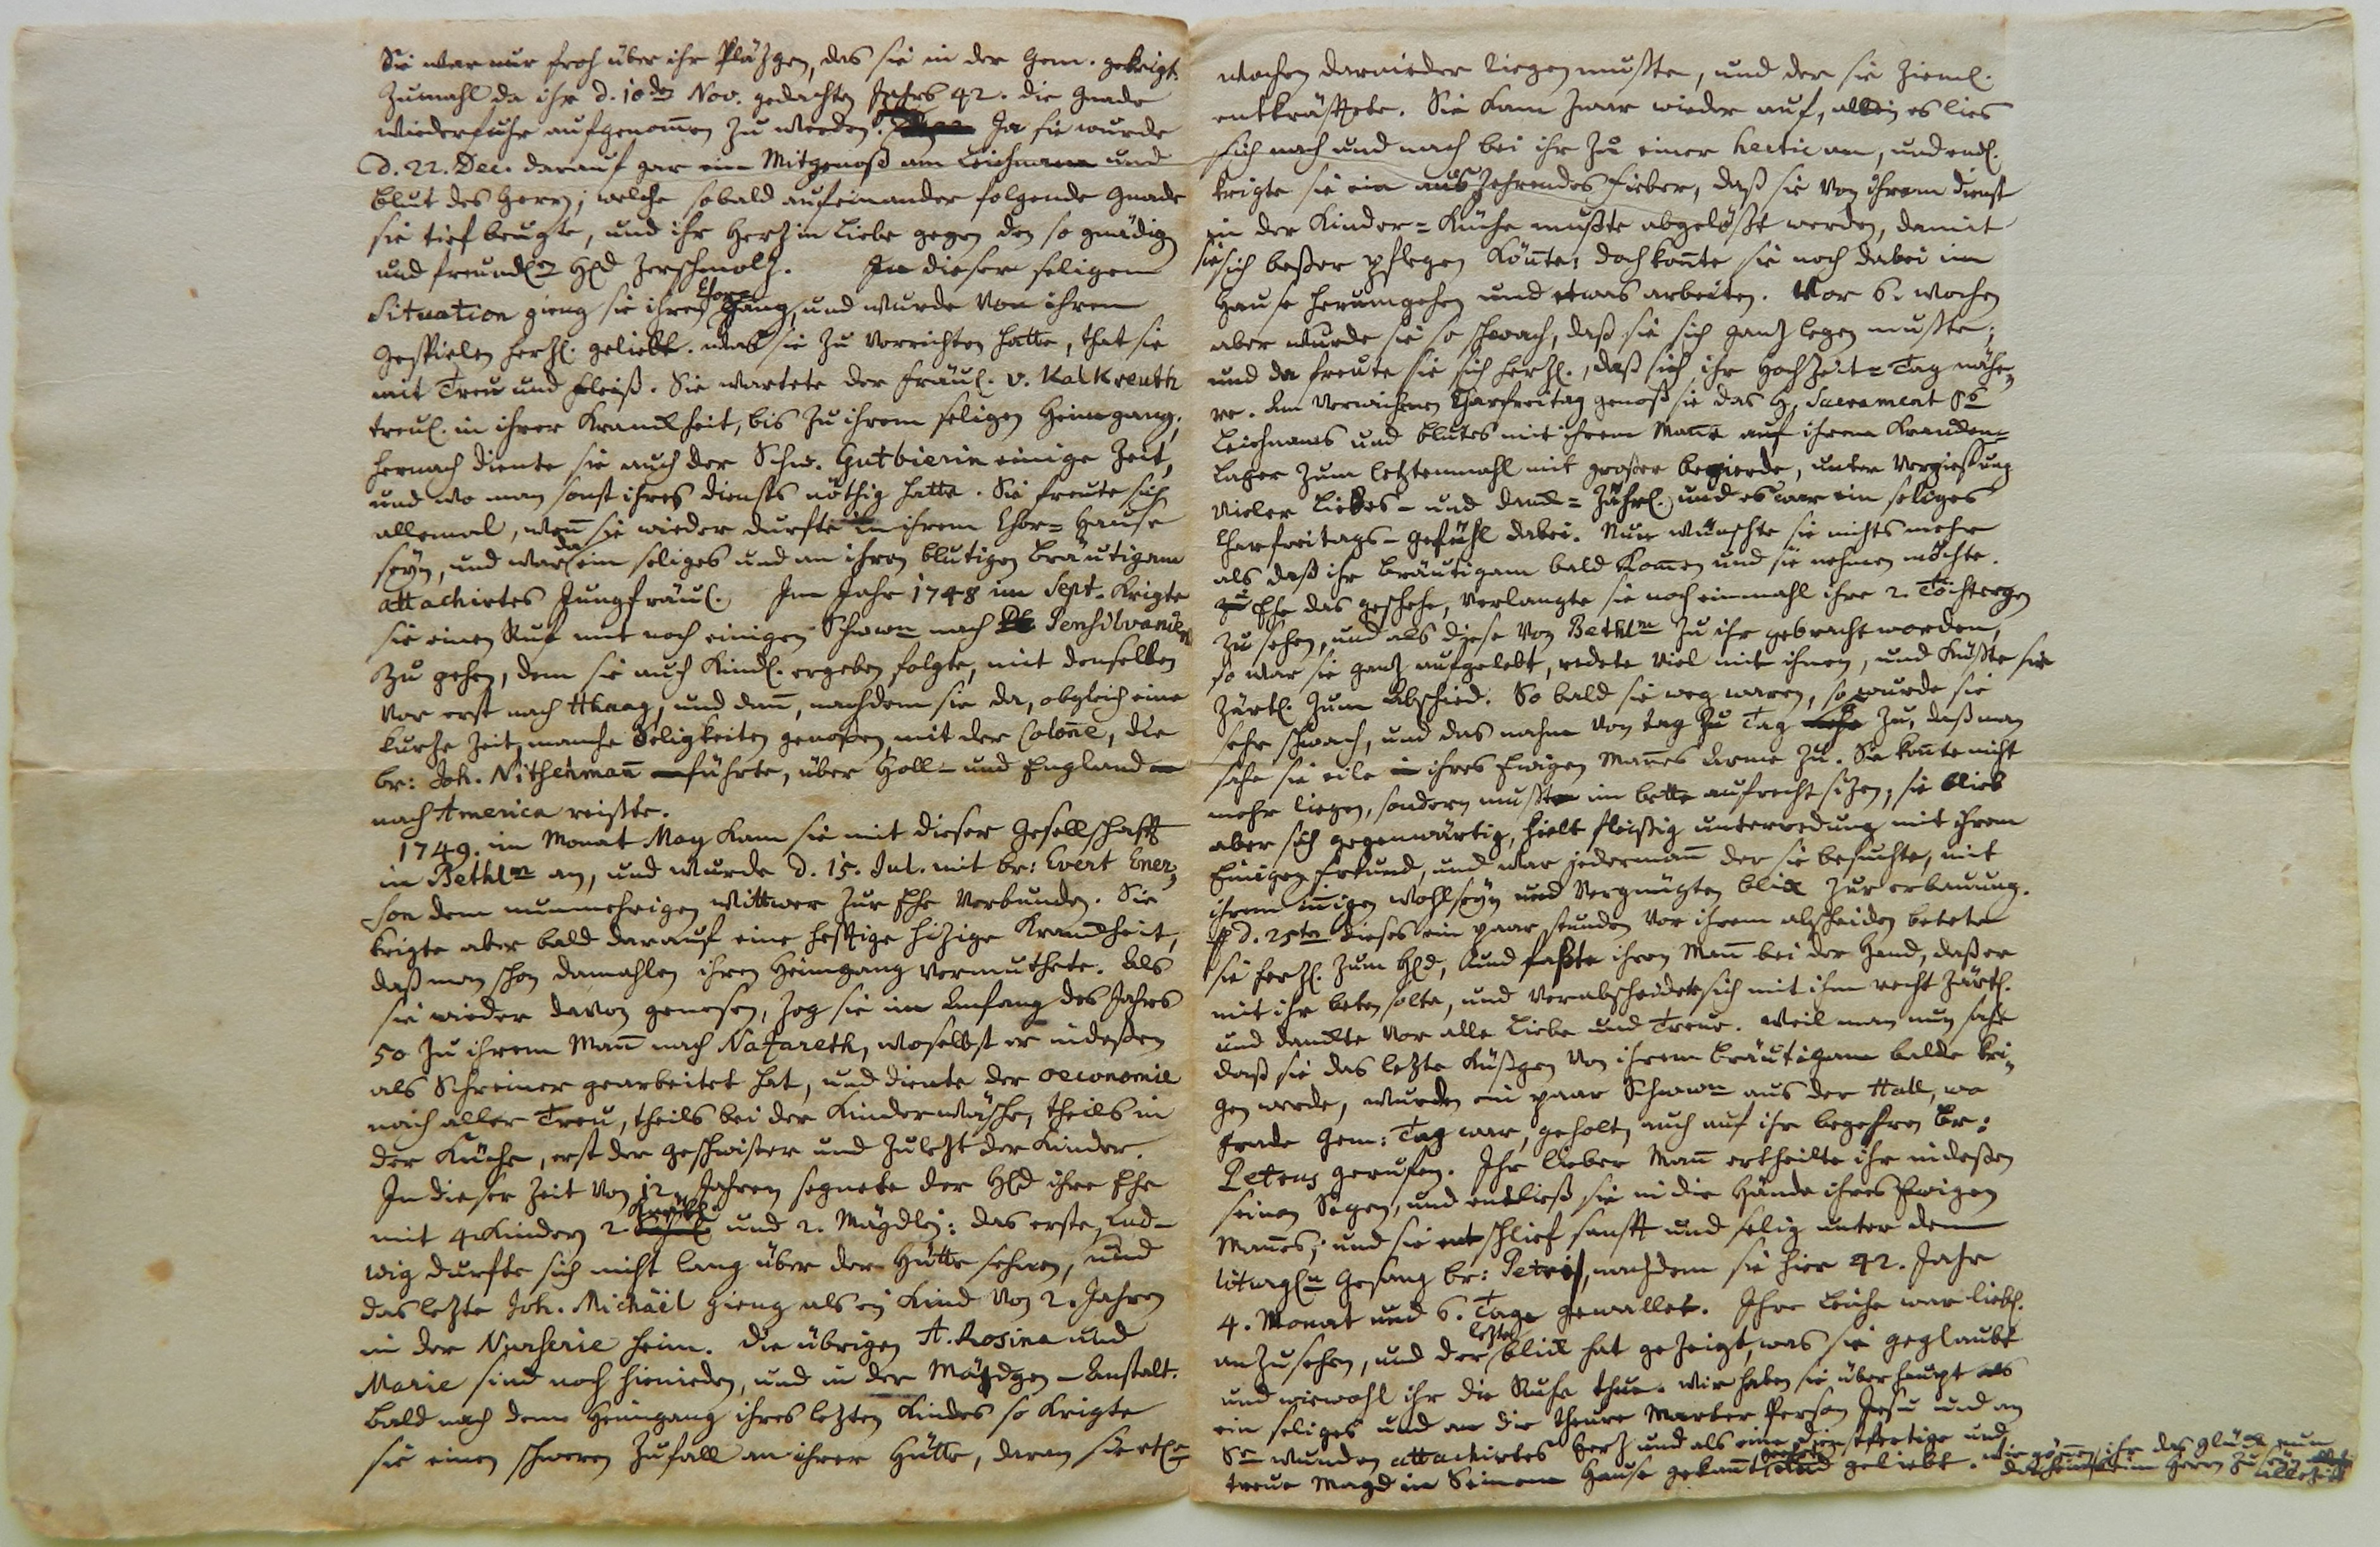 Sie war nur froh über ihr Pläzgen, das sie in der Gem. gekrigt.
Zumahl da ihr d. 10den Nov. gedachten Jahrs 42. die Gnade
wiederfuhr aufgenom̅en zu werden. Ja sie wurde
d. 22. Dec. darauf gar ein Mitgenoß am Leichnam und
Blut des Herrn; welche sobald aufeinander folgende Gnade
sie tief beugte, und ihr Herz in Liebe gegen den so gnädigen
und freundl. Hld zerschmolz. In dieser seligen
Situation gieng sie ihren Chor Gang, und wurde von ihren
Gespielen herzl. geliebt. Was sie zu verrichten hatte, that sie
mit Treu und Fleiß. Sie wartete der Fräul. v. Kalkreuth
treul. in ihrer Krankheit, bis zu ihrem seligen Heimgang;
hernach diente sie auch der Schw. Gutbierin einige Zeit,
und wo man sonst ihres Diensts nöthig hatte. Sie freute sich
allemal, wen̅ sie wieder durfte in ihrem Chor=Hause
seyn, und war da ein seliges und an ihren blutigen Bräutigam
attachirtes Jungfräul. Im Jahr 1748 im Sept. krigte
sie einen Ruf mit noch einigen Schwn nach Pensilvanien
zu gehen, dem sie auch kindl. ergeben folgte, mit denselben
vor erst nach Hhaag, und dan̅, nachdem sie da, obgleich eine
kurze Zeit, manche Seligkeiten genoßen, mit der Colonie, die
br: Joh. Nitschman̅ führte, über Holl- und England
nach America reißte.
1749. im Monat May kam sie mit dieser Gesellschafft
in Bethlm an, und wurde d. 15. Jul. mit br: Evert Ener¬
son dem nunmehrigen Wittwer zur Ehe verbunden. Sie
krigte aber bald darauf eine hefftige hizige Krankheit,
daß man schon damahlen ihren Heimgang vermuthete. Als
sie wieder davon genesen, zog sie im Anfang des Jahrs
50 zu ihrem Man̅ nach Nazareth, woselbst er indeßen
als Schreiner gearbeitet hat, und diente der oeconomie
nach aller Treu, theils bei der Kinderwäsche, theils in
der Küche, erst der Geschwister und zulezt der Kinder.
In dieser Zeit von 12. Jahren segnete der Hld ihre Ehe
mit 4 Kindern 2. Knäbl. und 2. Mägdlein: das erste, Lud-
wig durfte sich nicht lang über der Hütte sehnen, und
das lezte Joh. Michäel gieng als ein Kind von 2. Jahren
in der Nurserie heim. Die übrigen A. Rosina und
Marie sind noch hienieden, und in der Mägdgen-Anstalt.
Bald nach dem Heimgang ihres lezten Kindes so krigte
sie einen schweren Zufall an ihrer Hütte, daran sie etl.
Wochen darnieder liegen mußte, und der sie zieml.
entkräfftete. Sie kam zwar wieder auf, allein es lies
sich nach und nach bei ihr zu einer hectic an, und endl.
krigte sie ein auszehrendes Fieber, daß sie von ihrem Dienst
in der Kinder=Küche mußte abgelößt werden, damit
sie sich beßer pflegen kön̅te; doch kon̅te sie noch dabei im
Hause herumgehen und etwas arbeiten. Vor 6. Wochen
aber wurde sie so schwach, daß sie sich ganz legen mußte;
und da freute sie sich herzl., daß sich ihr Hochzeit=Tag nähe¬
re. Am verwichenen Charfreitag genoß sie das H. Sacrament Ss
Leichnams und Blutes mit ihrem Man̅e auf ihrem Kranken=
Lager zum leztenmahl mit großer Begierde, unter Vergießung
vieler Liebes- und Dank=Zährl. und es war ein seliges
Charfreitags-Gefühl dabei. Nun wünschte sie nichts mehr
als daß ihr Bräutigam bald kom̅en und sie nehmen möchte.
Ehe das geschehe, verlangte sie noch einmahl ihre 2. Töchtergen
zu sehen, und als diese von Bethlm zu ihr gebracht worden,
so war sie ganz aufgelebt, redete viel mit ihnen, und küßte sie
zärtl. zum Abschied. So bald sie weg waren, so wurde sie
sehr schwach, und das nahm von Tag zu Tag zu, daß man
sahe sie eile in ihres Ewigen Man̅es Arme zu. Sie kon̅te nicht
mehr liegen, sondern mußte im Bette aufrecht sizen; sie blieb
aber sich gegenwärtig, hielt fleißig Unterredung mit ihrem
Einigen Freund, und war jederman̅ der sie besuchte, mit
ihrem in̅igen Wohlseyn und vergnügten Blick zur Erbauung.
d. 25ten dieses ein paar Stunden vor ihrem Abscheiden betete
sie herzl. zum Hld, und faßte ihren Man̅ bei der Hand, daß er
mit ihr beten solte, und verabscheidete sich mit ihm recht zärtl.
und dankte vor alle Liebe und Treue. Weil man nun sahe
daß sie das lezte Küßgen von ihrem Bräutigam balde kri¬
gen werde, wurden ein paar Schwn aus der Hall, wo
grade Gem: Tag war, geholt, auch auf ihr Begehren Br:
Petrus gerufen. Ihr lieber Man̅ ertheilte ihr indeßen
seinen Segen, und entließ sie in die Hände ihres Ewigen
Man̅es; und sie entschlief sanfft und selig unter dem
liturgln Gesang br: Petri, nachdem sie hier 42. Jahr
4. Monat und 6. Tage gewallet. Ihre Leiche war liebl.
anzusehen, und der lezte Blick hat gezeigt, was sie geglaubt
und wie wohl ihr die Ruhe thue. Wir haben sie überhaupt als
ein seliges und an die theure Marter Person Jesu und an
Sn Wunden attachirtes Herz und als eine dienstfertige und
treue Magd in Seinem Hause gekan̅t und geliebt. Wir gön̅en ihr das Glück nun
daheim beim Herrn zu seyn allezeit